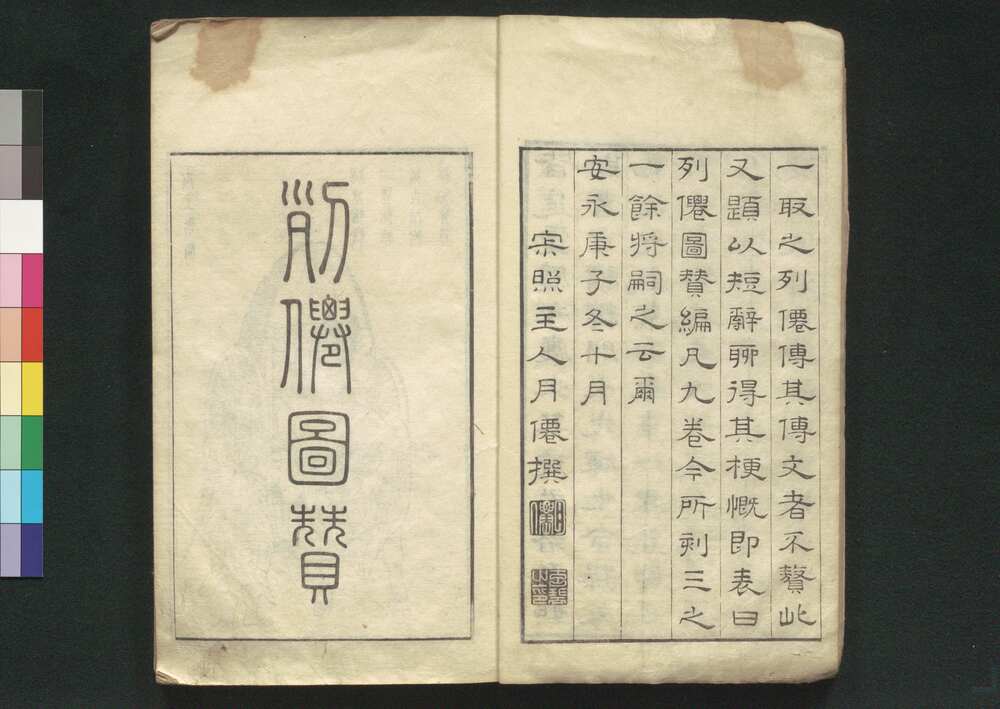 一取之列僊傳其傳文者不贅此
又題以短辭聊得其梗慨即表曰
列僊圖賛編凡九卷今所刻三之
一餘将嗣之云爾
安永庚子冬十月
宗照主人月僊撰
列僊圖贊